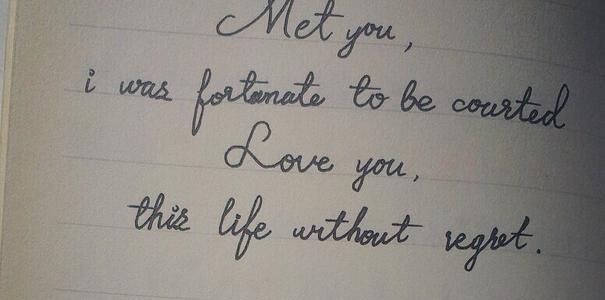 Met you,
i was fortunate to be courted
Love you,
this life without regret.